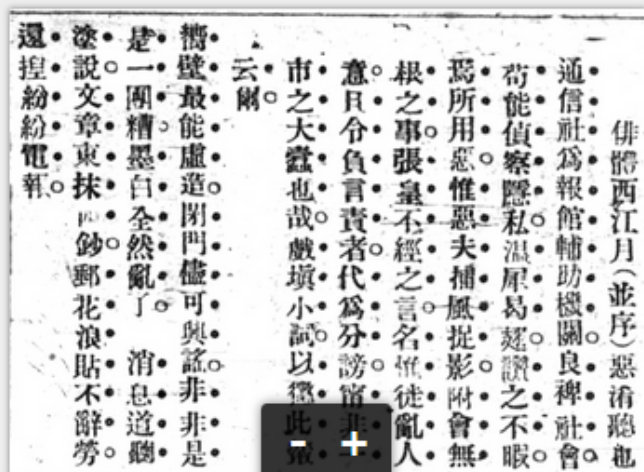 俳體西江月(並序)惡淆聽也
通信社爲報館輔助機關良裨社會。
苟能偵察隱私。溫犀曷燧。讚之不暇。
焉所用惡。惟惡夫捕風捉影。附會無
根之事。張皇不經之言。名惟徒亂人
意。且令負言責者。代爲分謗。甯非
市之大蠹也哉。戲塡小詞。以徵此
云爾。
嚮壁最能虛造。閉門儘可興謠。非非是
是一團糟。墨白全然亂了。 消息道聽
塗說。文章東抹 鈔。郵花浪貼不辭勞。
還捏紛紛電報。
- +